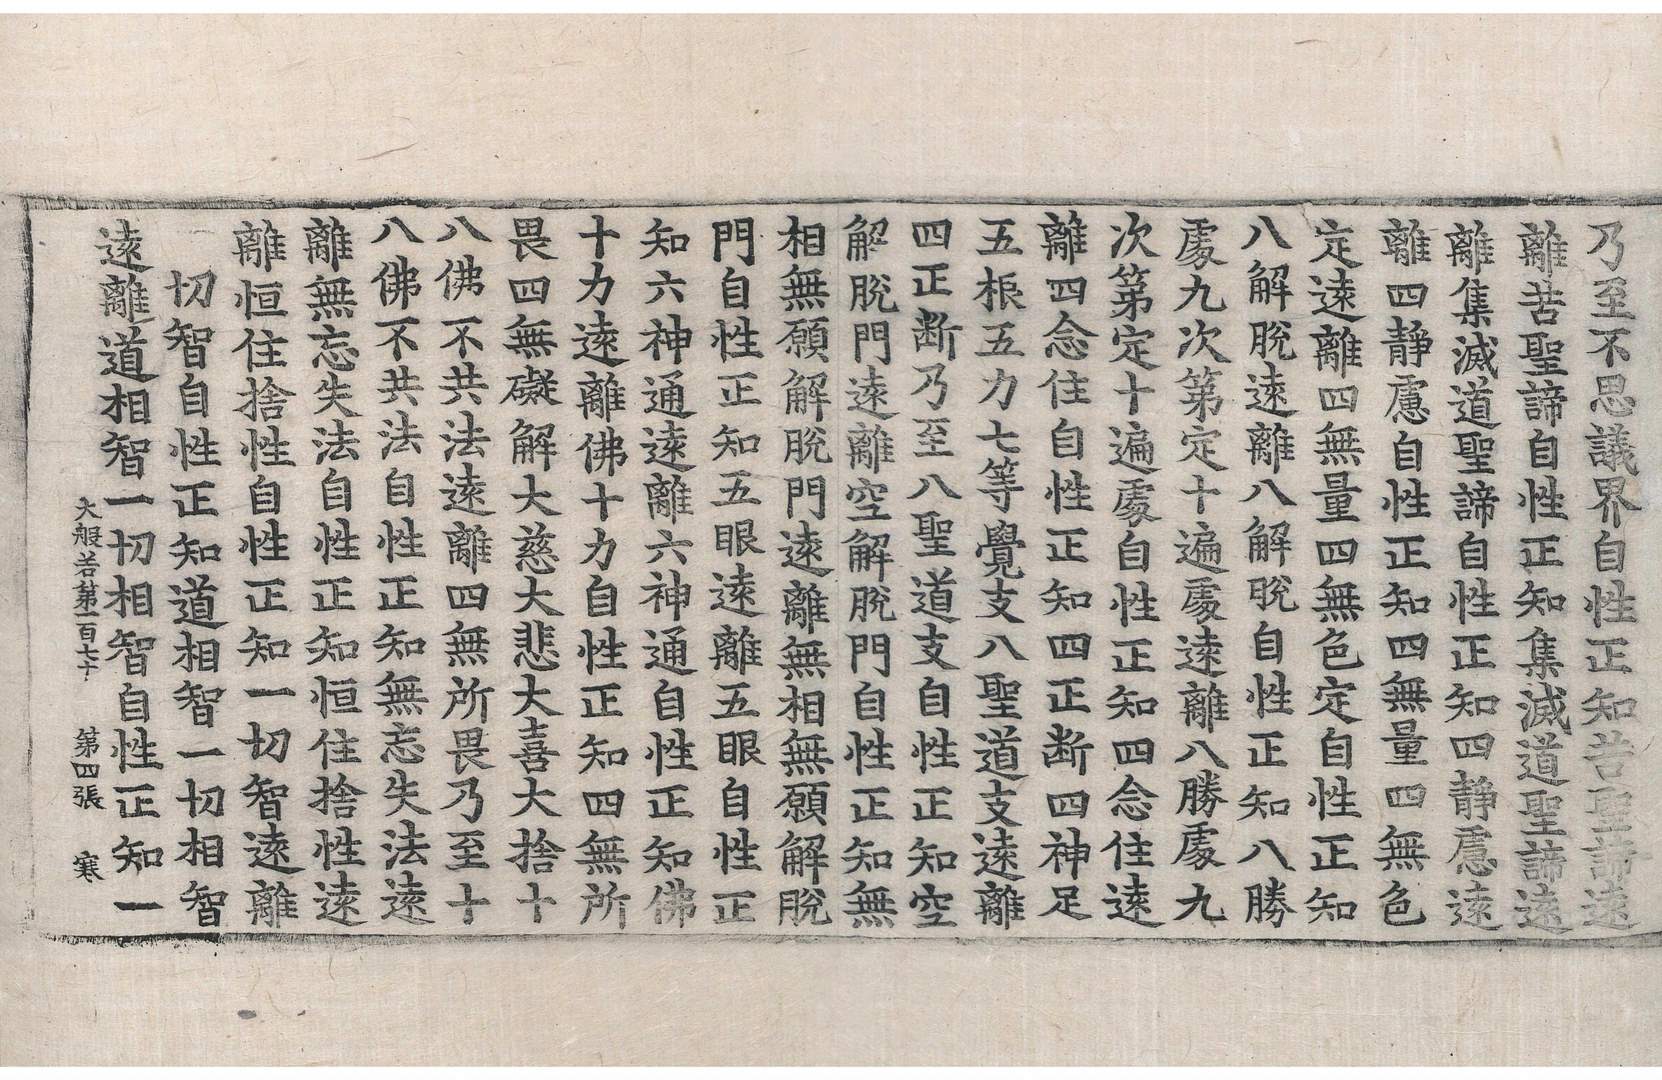 乃至不思議界自性正知苦聖諦遠
離苦聖諦自性正知集滅道聖諦遠
離集滅道聖諦自性正知四靜慮遠
離四靜慮自性正知四無量四無色
定遠離四無量四無色定自性正知
八解脫遠離八解脫自性正知八勝
處九次第定十遍處遠離八勝處九
次第定十遍處自性正知四念住遠
離四念住自性正知四正断四神足
五根五力七等覺支八聖道支遠離
四正断乃至八聖道支自性正知空
解脫門遠離空解脫門自性正知無
相無願解脫門遠離無相無願解脫
門自性正知五眼遠離五眼自性正
知六神通遠離六神通自性正知佛
十力遠離佛十力自性正知四無所
畏四無礙解大慈大悲大喜大捨十
八佛不共法遠離四無所畏乃至十
八佛不共法自性正知無忘失法遠
離無忘失法自性正知恒住捨性遠
離恒住捨性自性正知一切智遠離
切智自性正知道相智一切相智
遠離道相智一切相智自性正知一
大般若第一百七十 第四張 寒